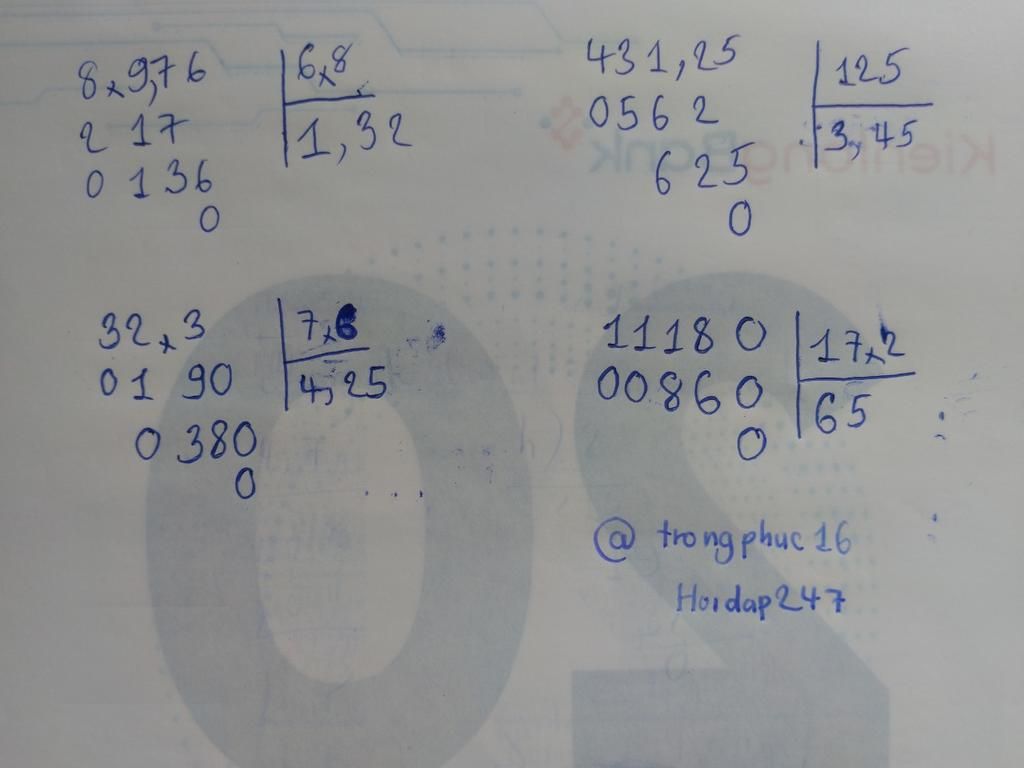 8,9,76 6,8
2 17 1,32
0 136
0
431,25 125
0562 3,45
625
0
32,3 7,6
01 90 4,25
0 380
0
11180 17,2
00860 65
0
@ trongphuc16
Hoidap247
KienlongBank
20